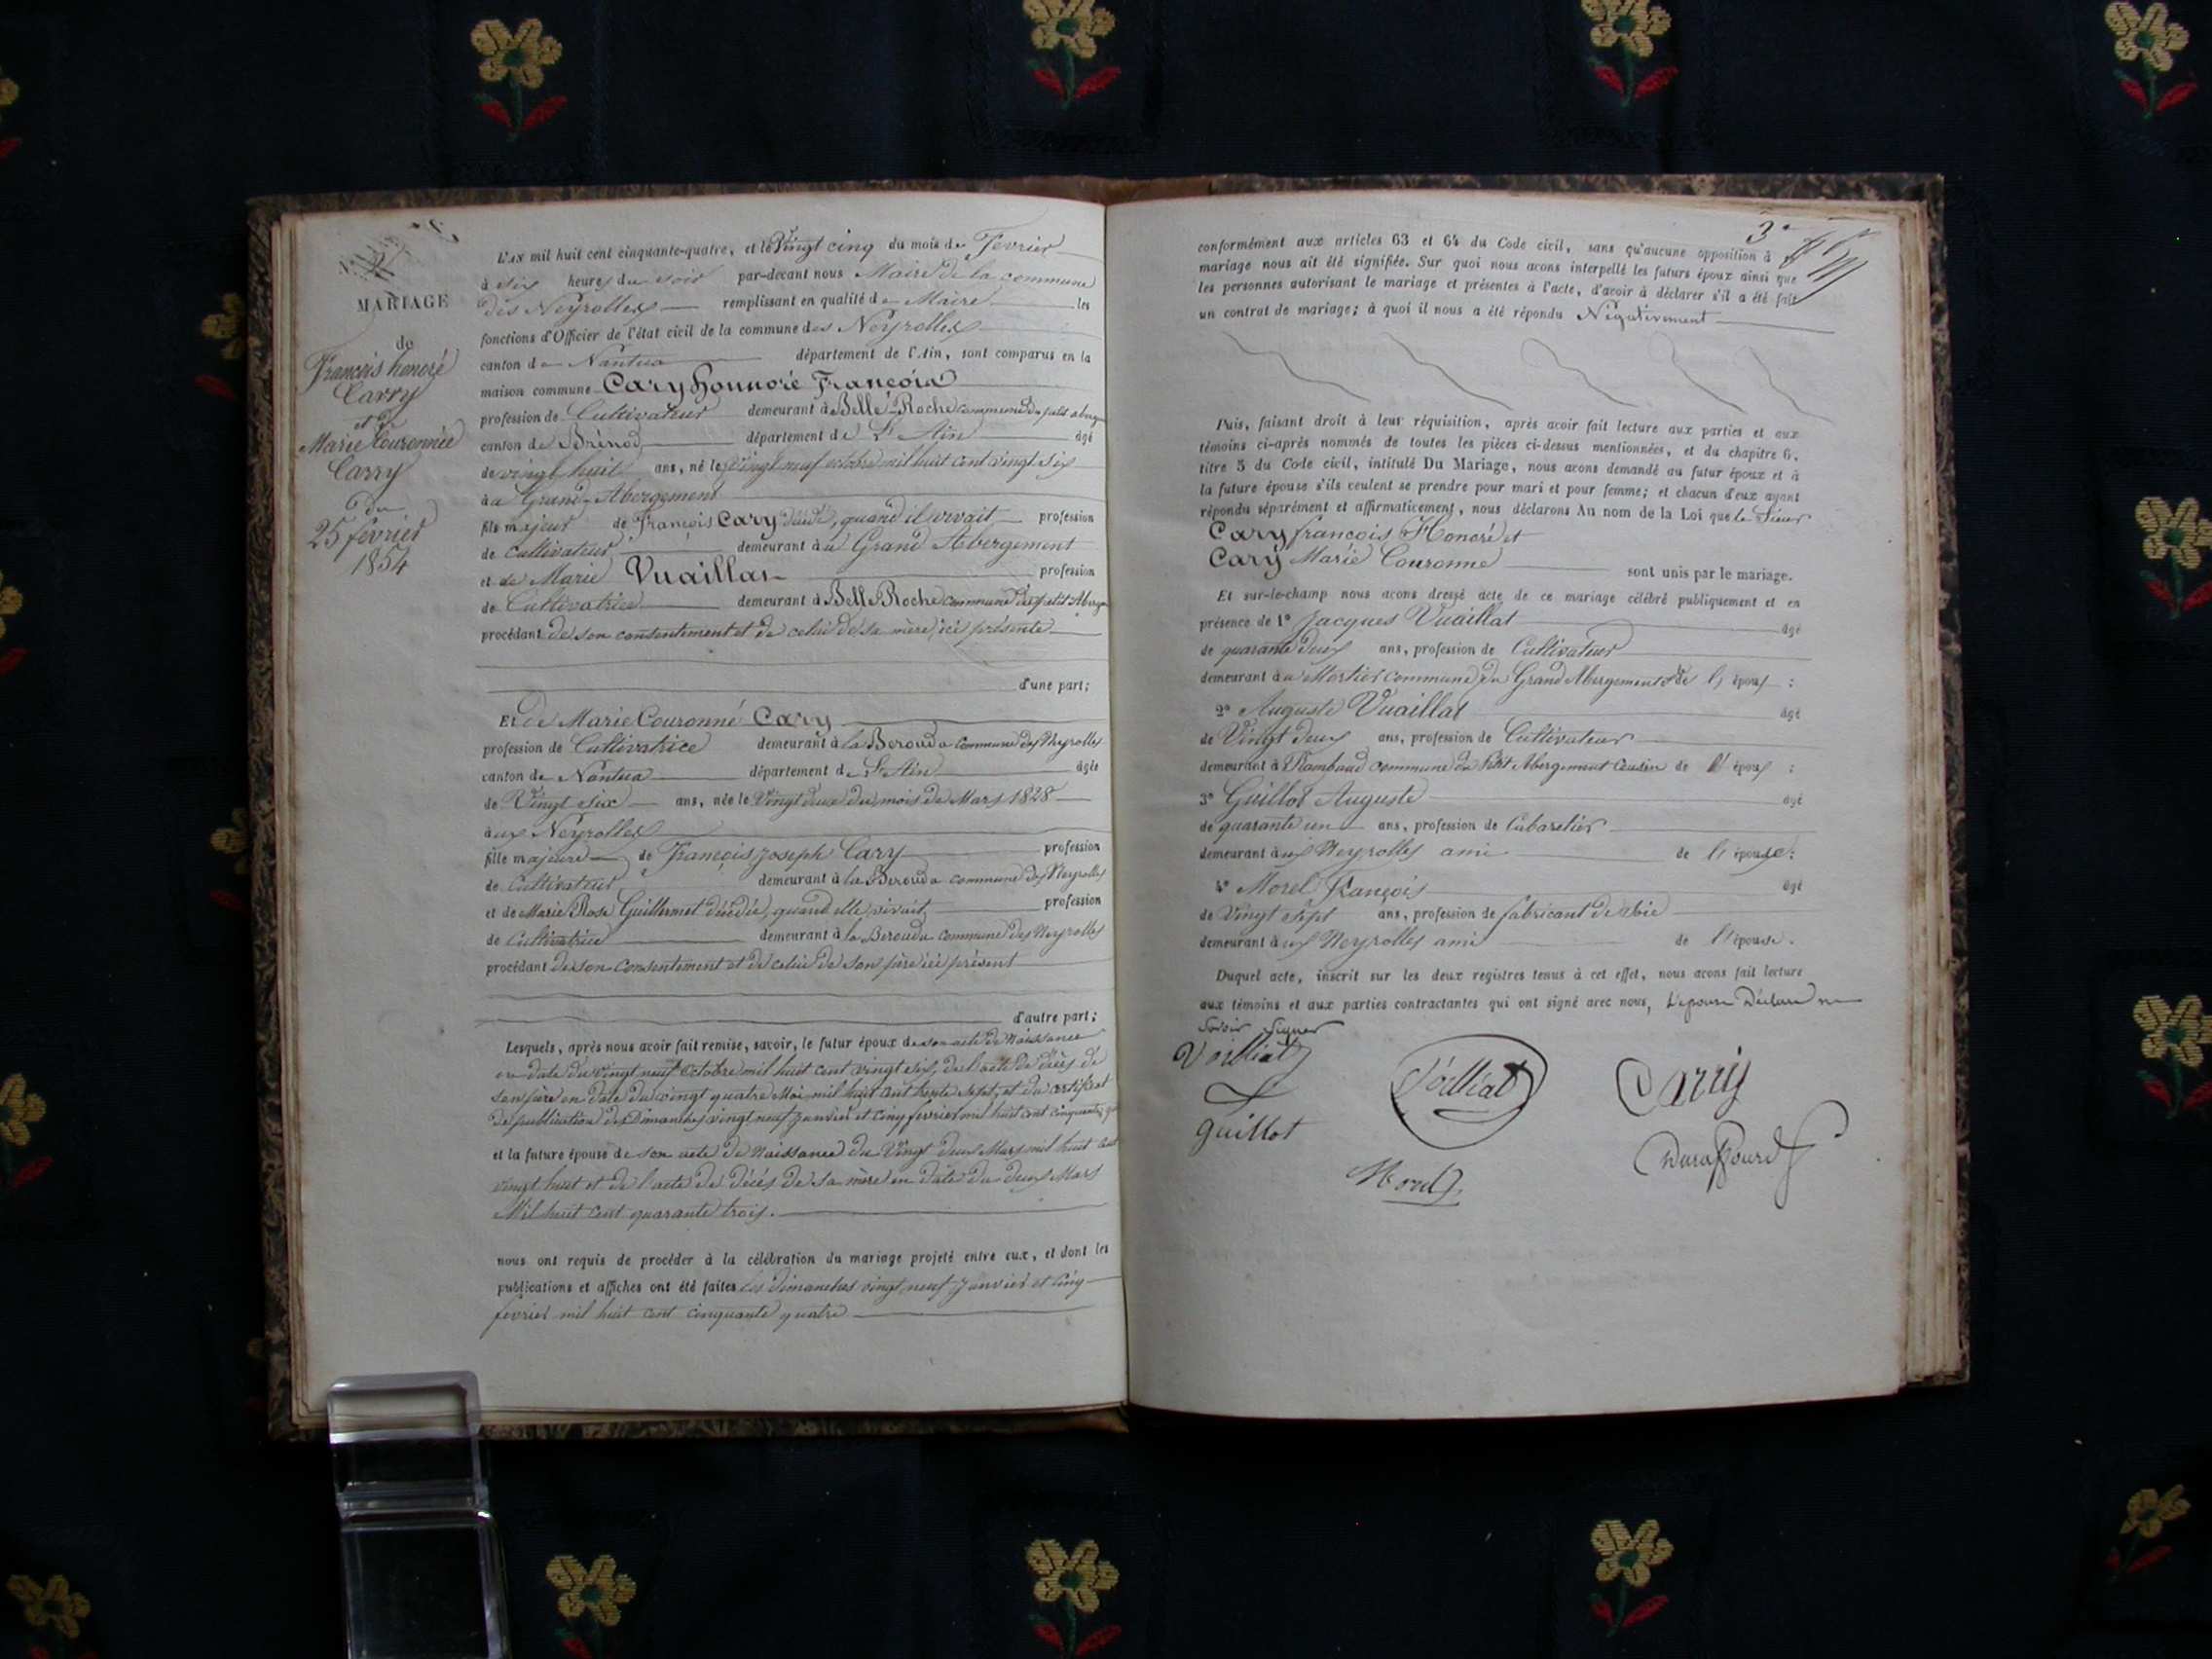 MARIAGE
de
François honoré
Carry
et de
Marie Couronnée
Carry
du
25 février
1854
L'AN mil huit cent cinquante-quatre, et le Vingt cinq du mois de Fevrier
à six heures du soir par-devant nous Maire de la commune
des Neyrolles remplissant en qualité de Maire les
fonctions d'Officier de l'état civil de la commune des Neyrolles
canton de Nantua département de l'Ain, sont comparus en la
maison commune Cary honnoré François
profession de Cultivateur demeurant à Belle-Roche commune du petit aberg
canton de Brénod département de L'Ain âgé
de vingt huit ans, né le vingt neuf octobre mil huit cent vingt six
à au Grand-Abergement
fils majeur de François Cary décédé, quand il vivait profession
de Cultivateur demeurant à au Grand Abergement
et de Marie Vuaillat profession
de Cultivatrice demeurant à Belle Roche commune du petit Aberge
procédant de son consentement et de celui de sa mère, ici présente
d'une part;
Et de Marie Couronné Cary
profession de Cultivatrice demeurant à la Berouda commune des Neyrolles
canton de Nantua département de L'Ain âgée
de Vingt six ans, née le Vingt deux du mois de Mars 1828
à aux Neyrolles
fille majeure de François joseph Cary profession
de Cultivateur demeurant à la Berouda commune des Neyrolles
et de Marie Rose Guillermet décédée, quand elle vivait profession
de Cultivatrice demeurant à la Berouda commune des Neyrolles
procédant de son consentement et de celui de son père ici présent
d'autre part;
Lesquels, après nous avoir fait remise, savoir, le futur époux de son acte de Naissance
en date du vingt neuf Octobre mil huit cent vingt six, de l'acte de décès de
son père en date du vingt quatre Mai mil huit cent trente sept, et du certificat
de publication des Dimanches vingt neuf janvier et cinq fevrier mil huit cent cinquante
et la future épouse de son acte de Naissance du Vingt deux Mars mil huit cent
vingt huit et de l'acte de décès de sa mère en date du deux Mars
Mil huit cent quarante trois.
nous ont requis de procéder à la célébration du mariage projeté entre eux, et dont les
publications et affiches ont été faites les dimanches vingt neuf janvier et cinq
fevrier mil huit cent cinquante quatre
3
conformément aux articles 63 et 64 du Code civil, sans qu'aucune opposition à
mariage nous ait été signifiée. Sur quoi nous avons interpellé les futurs époux ainsi que
les personnes autorisant le mariage et présentes à l'acte, d'avoir à déclarer s'il a été fait
un contrat de mariage; à quoi il nous a été répondu Négativement
Puis, faisant droit à leur réquisition, après avoir fait lecture aux parties et aux
témoins ci-après nommés de toutes les pièces ci-dessus mentionnées, et du chapitre 6,
titre 5 du Code civil, intitulé Du Mariage, nous avons demandé au futur époux et à
la future épouse s'ils veulent se prendre pour mari et pour femme; et chacun d'eux ayant
répondu séparément et affirmativement, nous déclarons Au nom de la Loi que le Sieur
Cary francois Honoré et
Cary Marie Couronne sont unis par le mariage.
Et sur-le-champ nous avons dressé acte de ce mariage célébré publiquement et en
présence de 1° Jacques Vuaillat âgé
de quarante deux ans, profession de Cultivateur
demeurant à au Mortier commune du Grand Abergement de l' époux :
2° Auguste Vuaillat âgé
de Vingt deux ans, profession de Cultivateur
demeurant à Rambaud commune du Petit Abergement Cousin de l' époux :
3° Guillot Auguste âgé
de quarante un ans, profession de Cabaretier
demeurant à aux Neyrolles ami de l' épouse :
4° Morel François âgé
de Vingt sept ans, profession de fabricant de soie
demeurant à aux Neyrolles ami de l' épouse.
Duquel acte, inscrit sur les deux registres tenus à cet effet, nous avons fait lecture
aux témoins et aux parties contractantes qui ont signé avec nous, L'épouse Déclare ne
Savoir signer
Voilliat
Carry
guillot
Morel